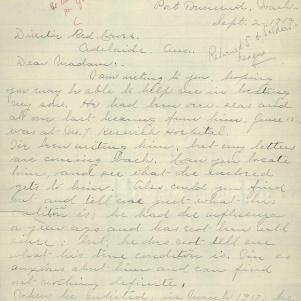 Port Townsend, Wash.
Sept. 2 - 19
Director Red Cross
Adelaide
Dear Madam:-
I am writing to you, hoping
you may be able to help me in locating
my son. He had been over seas and
at one last hearing from him, June 15,
was at Hospital.
I've been writing him, but my letters
are coming back. Can you locate
him, and see that the enclosed
gets to him. Also could you find
out and tell me just what his
condition is; he had the influenza
a year ago and has not been well
since. but, he does not tell me
what his true condition is. I'm so
anxious about him and can find
out nothing definite.
When he enlisted, in March 1917, he